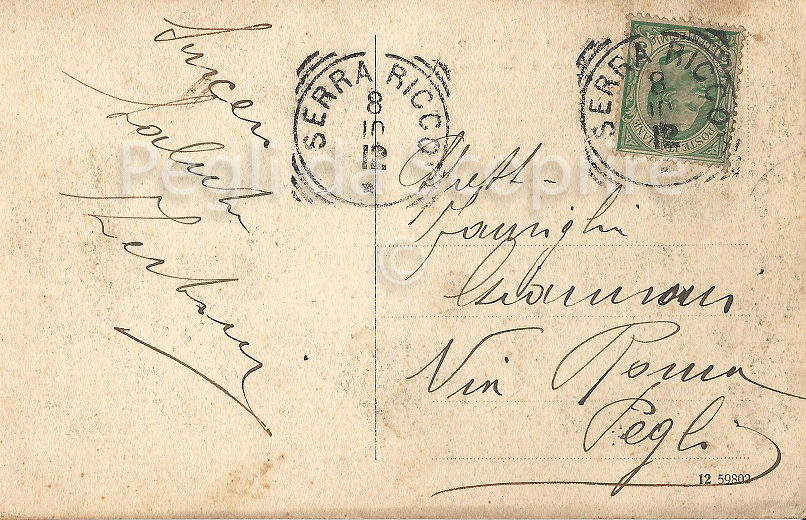 Sinceri
saluti
SERRA RICCO
8
10
12
SERRA RICCO
8
10
12
POSTE
Pegli da Scoprire
©
Famiglia
Via Roma
Pegli
12 59802